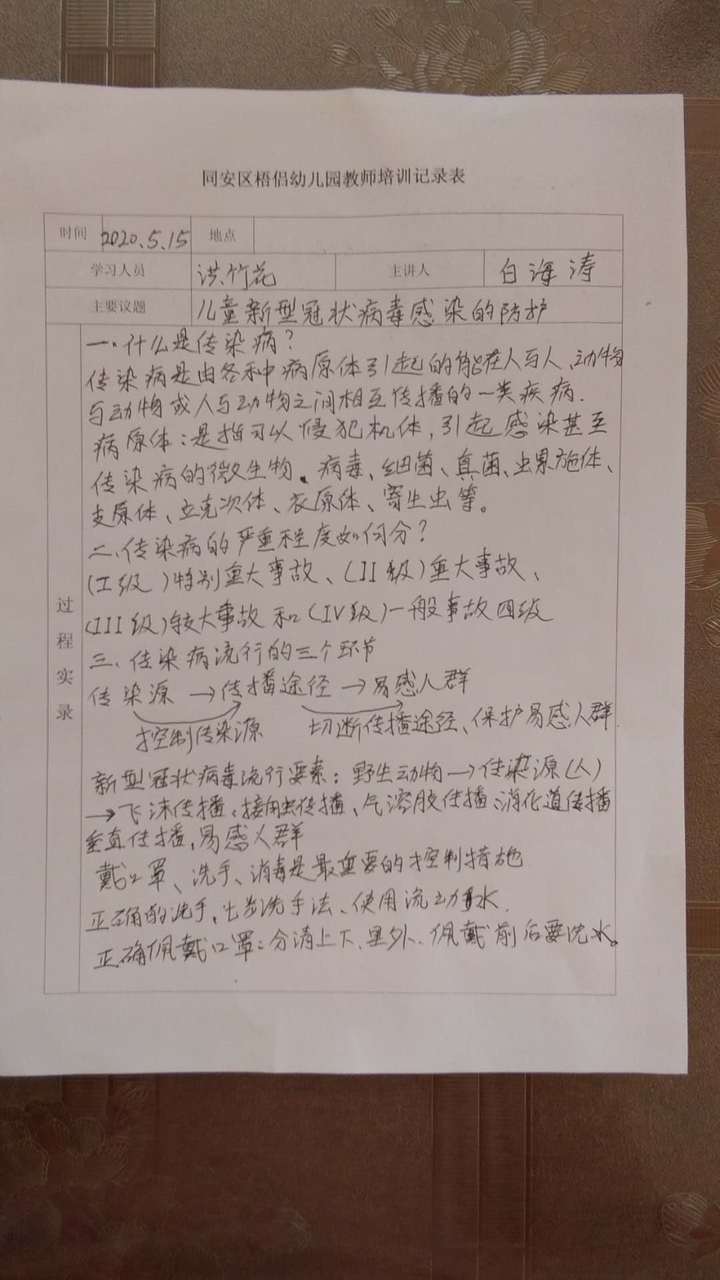 同安区梧侣幼儿园教师培训记录表
时间 2020.5.15 地点
学习人员 洪竹花 主讲人 白海涛
主要议题 儿童新型冠状病毒感染的防护
过程实录
一.什么是传染病?
传染病是由各种病原体引起的能在人与人、动物
与动物或人与动物之间相互传播的一类疾病.
病原体:是指可以侵犯机体,引起感染甚至
传染病的微生物。病毒、细菌、真菌、虫累旋体、
支原体、立克次体、衣原体、寄生虫等。
二.传染病的严重程度如何分?
(I级)特别重大事故、(II级)重大事故、
(III级)较大事故和(IV级)一般事故四级
三.传染病流行的三个环节
传染源→传播途径→易感人群
控制传染源 切断传播途径、保护易感人群.
新型冠状病毒流行要素:野生动物→传染源(人)
→飞沫传播、接触传播、气溶胶传播、消化道传播
垂直传播,易感人群
戴口罩、洗手、消毒是最重要的控制措施
正确的洗手,七步洗手法、使用流动水.
正确佩戴口罩:分清上下、里外.佩戴前后要洗水。